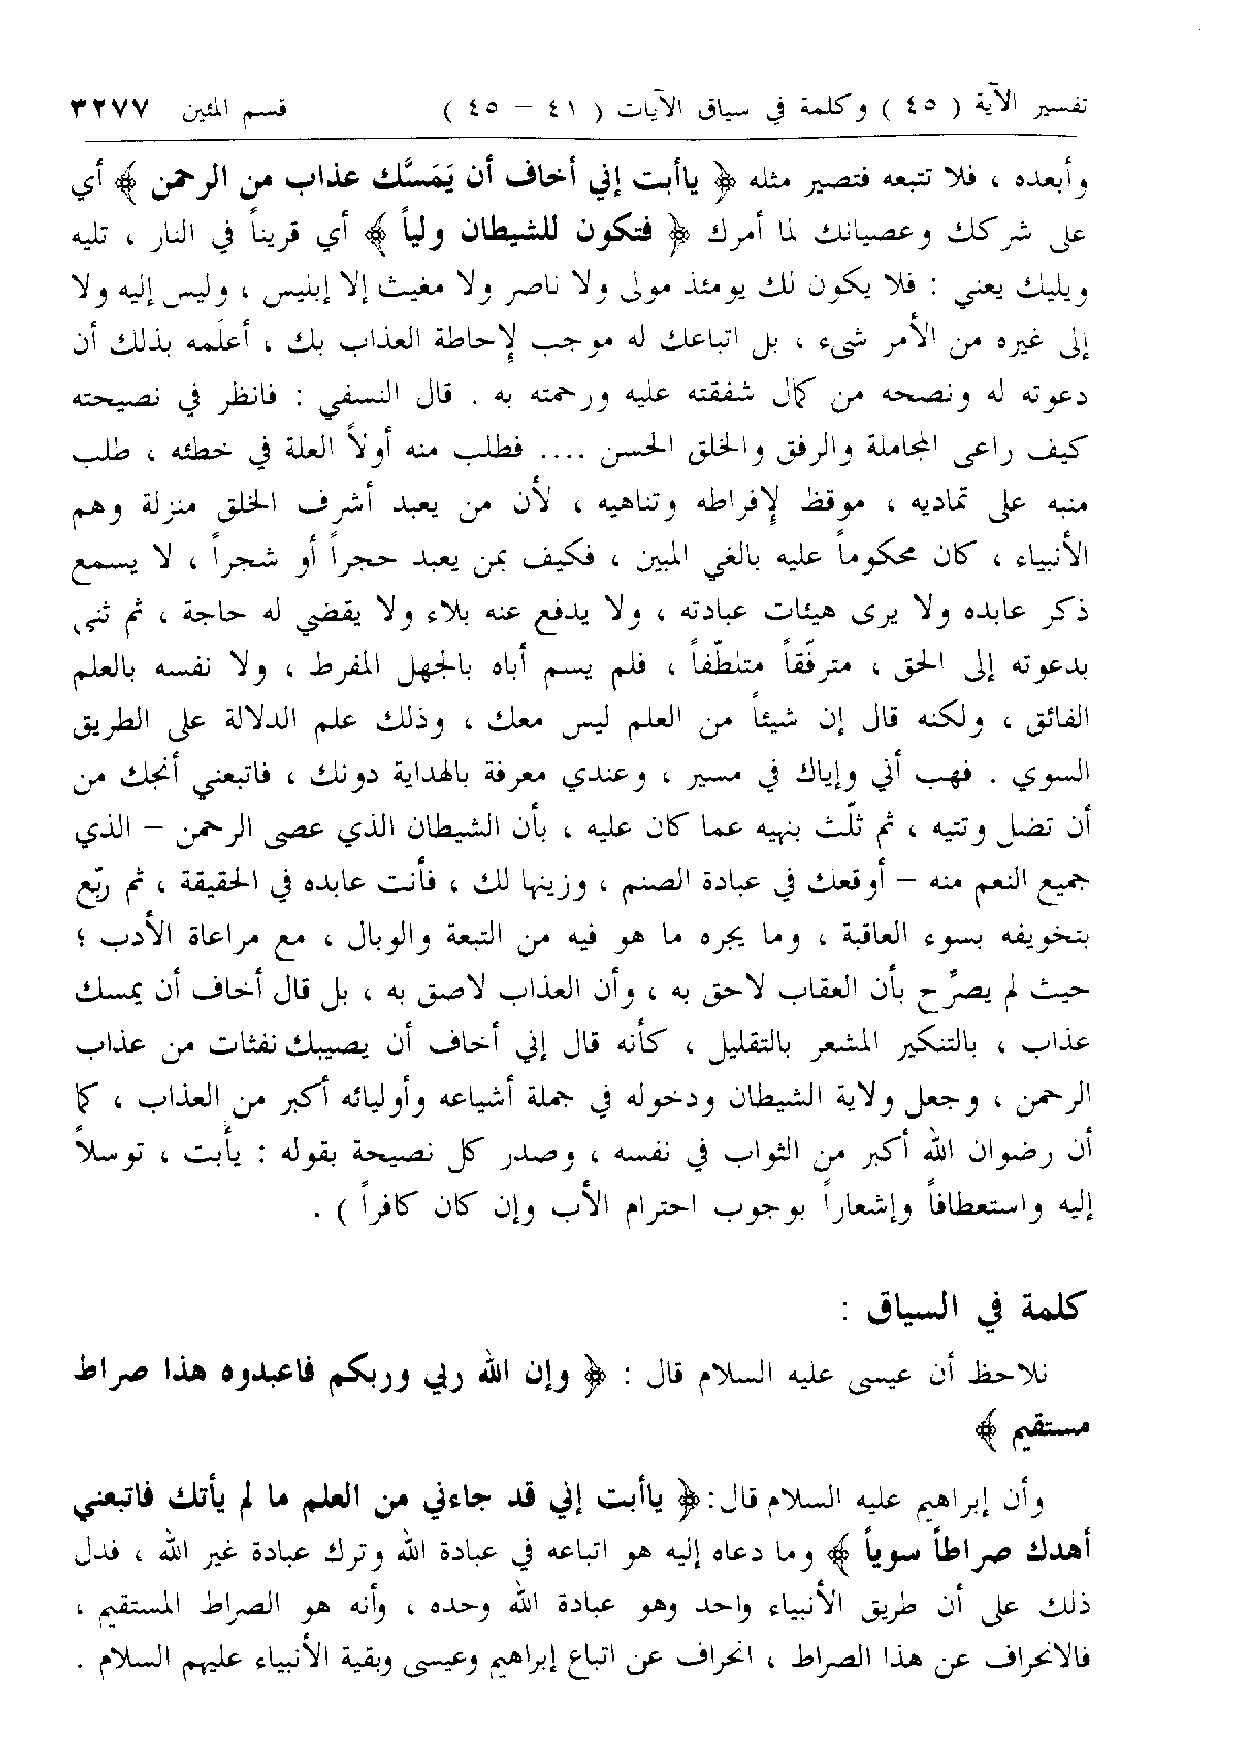 تفسير الآية ( ٤٥ ) وكلمة في سياق الآيات ( ٤١ – ٤٥ ) قسم المئين ٣٢٧٧
وأبعده ، فلا تتبعه فتصير مثله ﴿ ياأبت إني أخاف أن يَمَسَّك عذاب من الرحمن ﴾ أي
على شركك وعصيانك لما أمرك ﴿ فتكون للشيطان ولياً ﴾ أي قريناً في النار ، تليه
ويليك يعني : فلا يكون لك يومئذ مولى ولا ناصر ولا مغيث إلا إبليس ، وليس إليه ولا
إلى غيره من الأمر شيء ، بل اتباعك له موجب لإحاطة العذاب بك ، أعلَمه بذلك أن
دعوته له ونصحه من كمال شفقته عليه ورحمته به . قال النسفي : فانظر في نصيحته
كيف راعى المجاملة والرفق والخلق الحسن .... فطلب منه أولاً العلة في خطئه ، طلب
منبه على تماديه ، موقظ لإفراطه وتناهيه ، لأن من يعبد أشرف الخلق منزلة وهم
الأنبياء ، كان محكوماً عليه بالغي المبين ، فكيف بمن يعبد حجراً أو شجراً ، لا يسمع
ذكر عابده ولا يرى هيئات عبادته ، ولا يدفع عنه بلاء ولا يقضي له حاجة ، ثم ثنى
بدعوته إلى الحق ، مترفّقاً متلطّفاً ، فلم يسم أباه بالجهل المفرط ، ولا نفسه بالعلم
الفائق ، ولكنه قال إن شيئاً من العلم ليس معك ، وذلك علم الدلالة على الطريق
السوي . فهب أني وإياك في مسير ، وعندي معرفة بالهداية دونك ، فاتبعني أنجك من
أن تضل وتتيه ، ثم ثلّث بنهيه عما كان عليه ، بأن الشيطان الذي عصى الرحمن – الذي
جميع النعم منه – أوقعك في عبادة الصنم ، وزينها لك ، فأنت عابده في الحقيقة ، ثم ربّع
بتخويفه بسوء العاقبة ، وما يجره ما هو فيه من التبعة والوبال ، مع مراعاة الأدب ؛
حيث لم يصرّح بأن العقاب لاحق به ، وأن العذاب لاصق به ، بل قال أخاف أن يمسك
عذاب ، بالتنكير المشعر بالتقليل ، كأنه قال إني أخاف أن يصيبك نفثات من عذاب
الرحمن ، وجعل ولاية الشيطان ودخوله في جملة أشياعه وأوليائه أكبر من العذاب ، كما
أن رضوان الله أكبر من الثواب في نفسه ، وصدر كل نصيحة بقوله : يأبت ، توسلاً
إليه واستعطافاً وإشعاراً بوجوب احترام الأب وإن كان كافراً ) .
كلمة في السياق :
نلاحظ أن عيسى عليه السلام قال : ﴿ وإن الله ربي وربكم فاعبدوه هذا صراط
مستقيم ﴾
وأن إبراهيم عليه السلام قال: ﴿ ياأبت إني قد جاءني من العلم ما لم يأتك فاتبعني
أهدك صراطاً سوياً ﴾ وما دعاه إليه هو اتباعه في عبادة الله وترك عبادة غير الله ، فدل
ذلك على أن طريق الأنبياء واحد وهو عبادة الله وحده ، وأنه هو الصراط المستقيم ،
فالانحراف عن هذا الصراط ، انحراف عن اتباع إبراهيم وعيسى وبقية الأنبياء عليهم السلام .